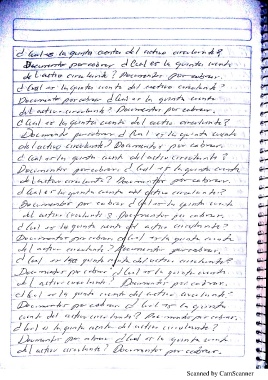 ¿Cual es la quinta cuenta del activo circulante?
Documentos por cobrar ¿Cual es la quinta cuenta
del activo circulante? Documentos por cobrar.
¿Cual es la quinta cuenta del activo circulante?
Documentos por cobrar ¿Cual es la quinta cuenta
del activo circulante? Documentos por cobrar.
¿Cual es la quinta cuenta del activo circulante?
Documentos por cobrar ¿Cual es la quinta cuenta
del activo circulante? Documentos por cobrar.
¿Cual es la quinta cuenta del activo circulante?
Documentos por cobrar. ¿Cual es la quinta cuenta
del activo circulante? Documentos por cobrar.
¿Cual es la quinta cuenta del activo circulante?
Documentos por cobrar ¿Cual es la quinta cuenta
del activo circulante? Documentos por cobrar.
¿Cual es la quinta cuenta del activo circulante?
Documentos por cobrar ¿Cual es la quinta cuenta
del activo circulante? Documentos por cobrar.
¿Cual es la quinta cuenta del activo circulante?
Documentos por cobrar ¿Cual es la quinta cuenta
del activo circulante? Documentos por cobrar.
¿Cual es la quinta cuenta del activo circulante?
Documentos por cobrar ¿Cual es la quinta
cuenta del activo circulante? Documentos por cobrar.
¿Cual es la quinta cuenta del activo circulante?
Documentos por cobrar ¿Cual es la quinta cuenta
del activo circulante? Documentos por cobrar.
Scanned by CamScanner